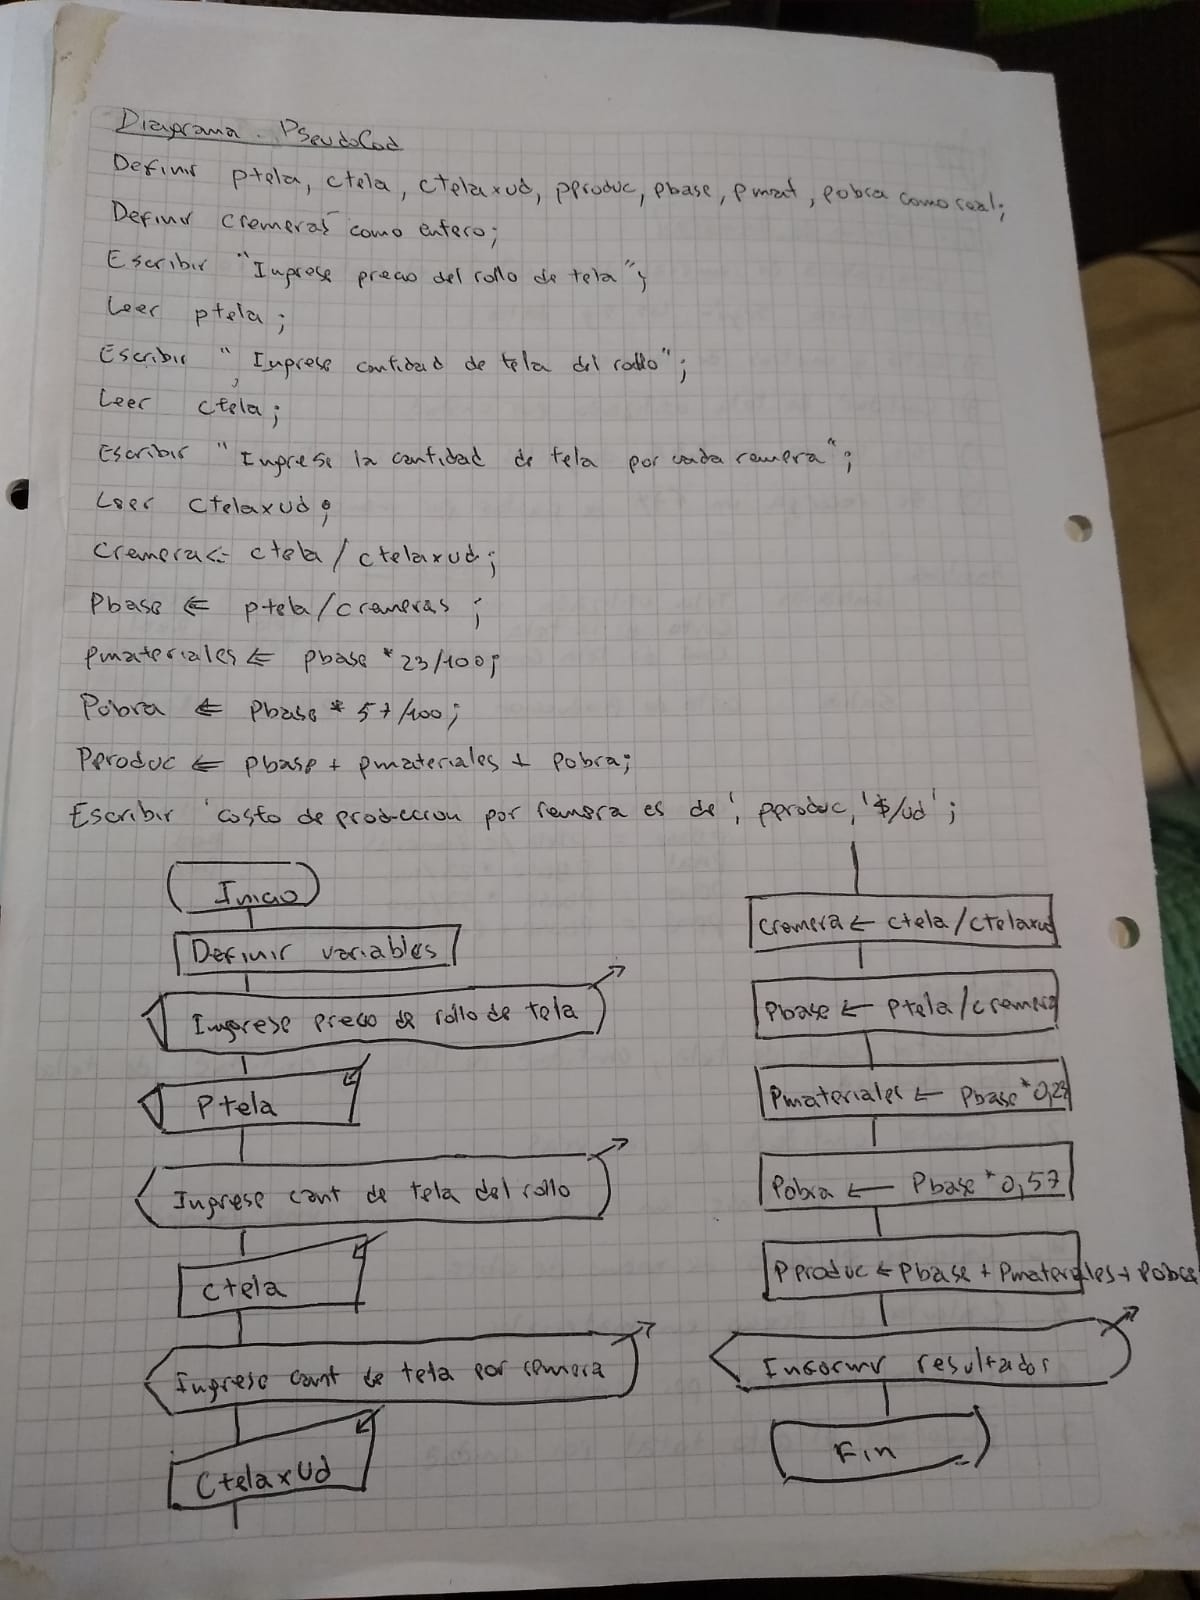 Diagrama. PseudoCod
Definir ptela, ctela, ctelaxud, pproduc, pbase, pmat, pobra como real;
Definir cremeras como entero;
Escribir "Ingrese precio del rollo de tela";
Leer ptela;
Escribir "Ingrese cantidad de tela del rollo";
Leer ctela;
Escribir "Ingrese la cantidad de tela por cada remera";
Leer ctelaxud;
cremera <- ctela / ctelaxud;
Pbase ⇐ ptela/cremeras;
Pmateriales ⇐ pbase * 23/100;
Pobra ⇐ Pbase * 57/100;
Pproduc ⇐ pbase + pmateriales + Pobra;
Escribir 'costo de produccion por remera es de', pproduc, '$/ud';
Inicio
Definir variables
Ingrese precio de rollo de tela
Ptela
Ingrese cant de tela del rollo
Ctela
Ingrese cant de tela por remera
CtelaxUd
Cremera ← ctela/ctelaxud
Pbase ← Ptela/cremera
Pmateriales ← Pbase * 0,23
Pobra ← Pbase * 0,57
Pproduc ← Pbase + Pmateriales + Pobra
Informar resultados
Fin